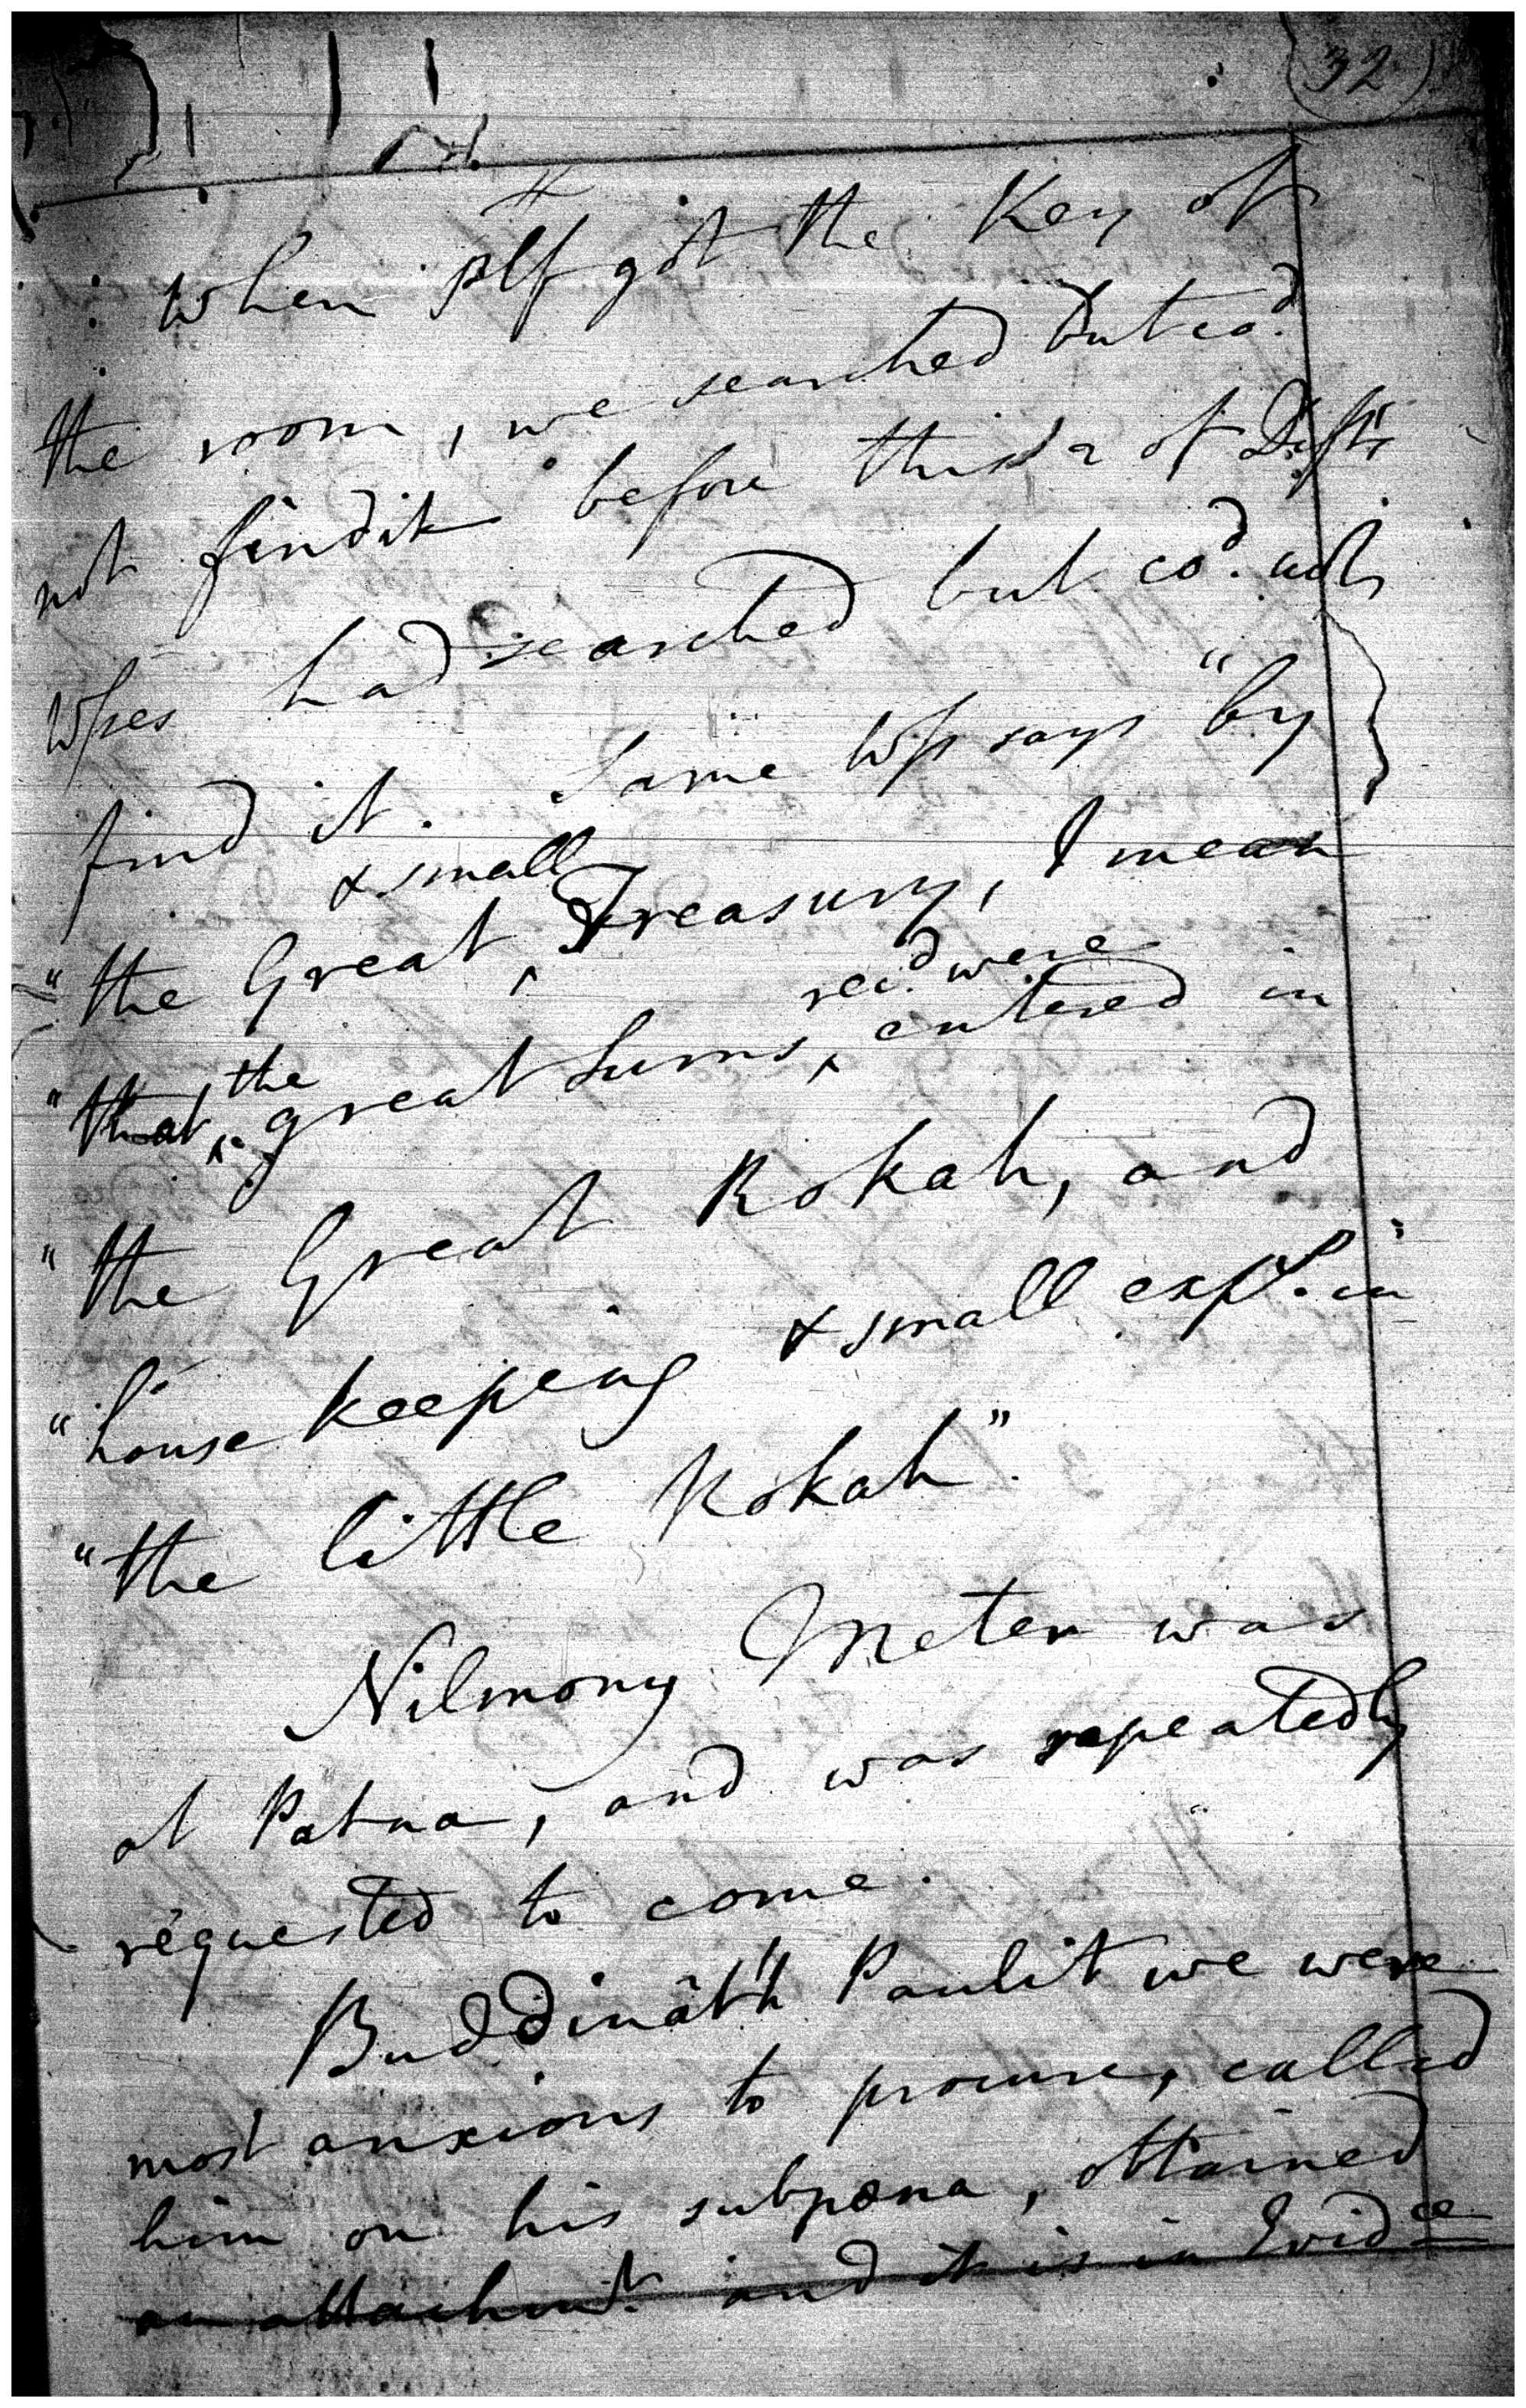 32
When Plf got the Key of
the room, we searched but cod.
not find it before this 2 of Defts
Wsses had searched but cod. not
find it. Same Wss says "by
"the Great & small Treasury, I mean
"that the great Sums recd. were entered in
"the Great Rokah, and
"house keeping & small exps. in"
"the little Rokah".
Nilmony Meter was
at Patna, and was repeatedly
requested to come.
Buddinât'h Paulit we were
most anxious to procure, called
him on his subpœna, obtained
an attachmt. and it is in Evidce